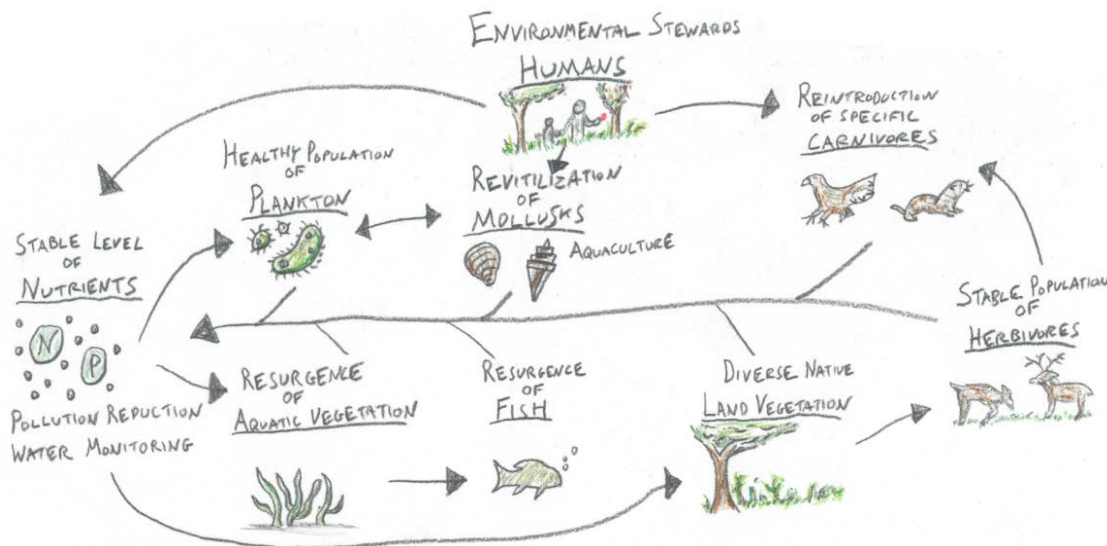 ENVIRONMENTAL STEWARDS
HUMANS
REINTRODUCTION
OF SPECIFIC
CARNIVORES
HEALTHY POPULATION
OF
PLANKTON
REVITILIZATION
OF
MOLLUSKS
AQUACULTURE
STABLE LEVEL
OF
NUTRIENTS
N
P
POLLUTION REDUCTION
WATER MONITORING
STABLE POPULATION
OF
HERBIVORES
RESURGENCE
OF
AQUATIC VEGETATION
RESURGENCE
OF
FISH
DIVERSE NATIVE
LAND VEGETATION